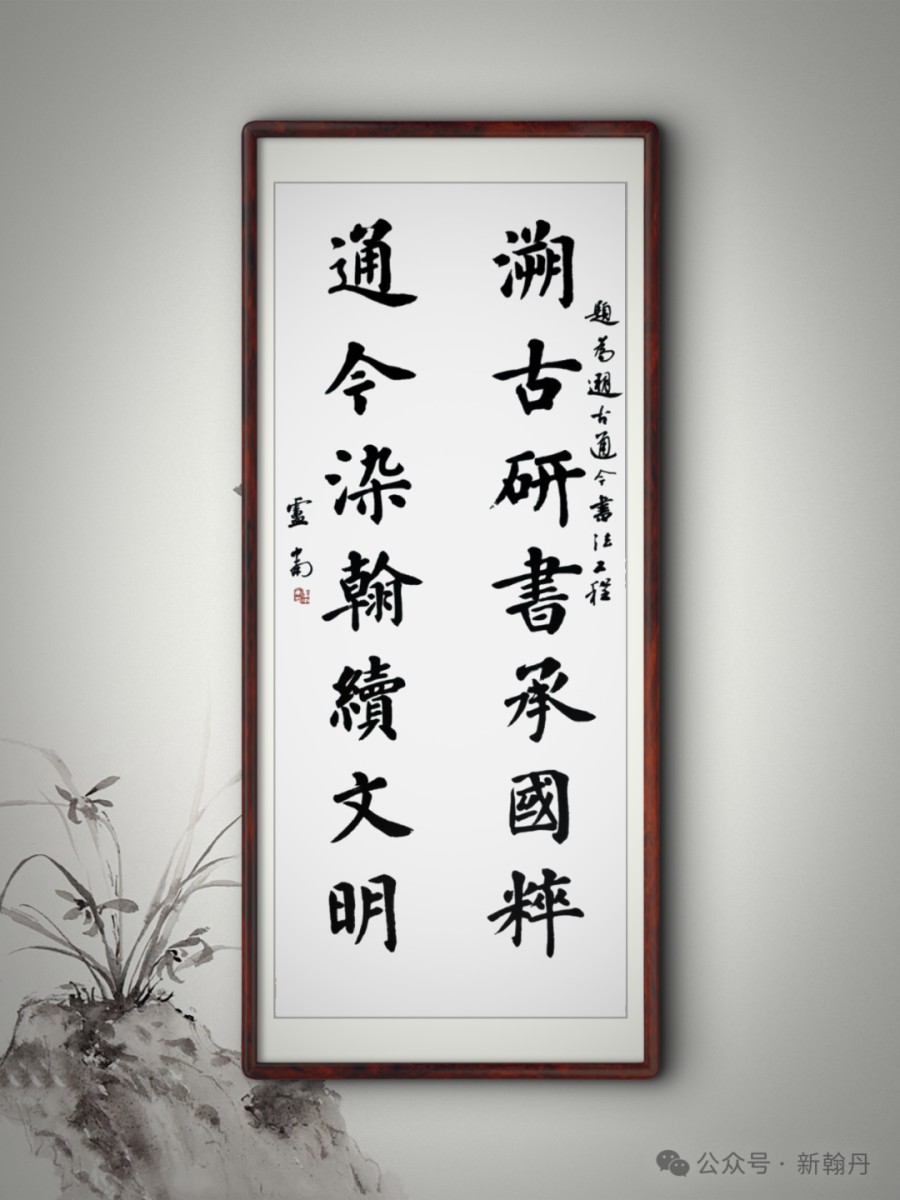 題為遡古通今書法工程
溯古研書承國粹
通今染翰續文明
公众号·新翰丹